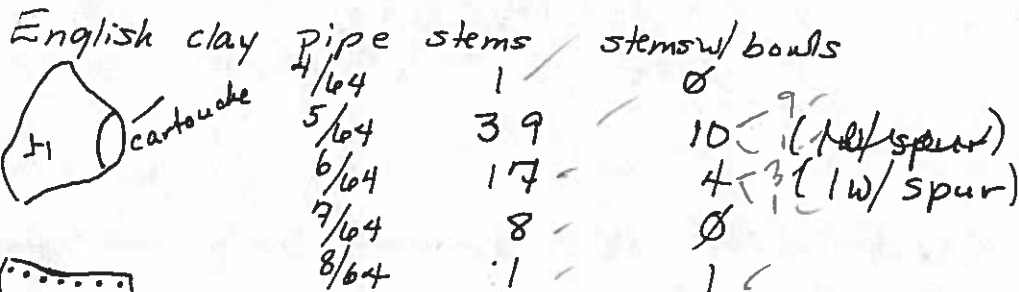 English clay pipe stems stems w/ bowls
4/64 1 Ø
cartouche
5/64 39 10 9 1 (1 w/ spur)
6/64 17 4 3 1 (1 w/ spur)
7/64 8 Ø
8/64 1 1